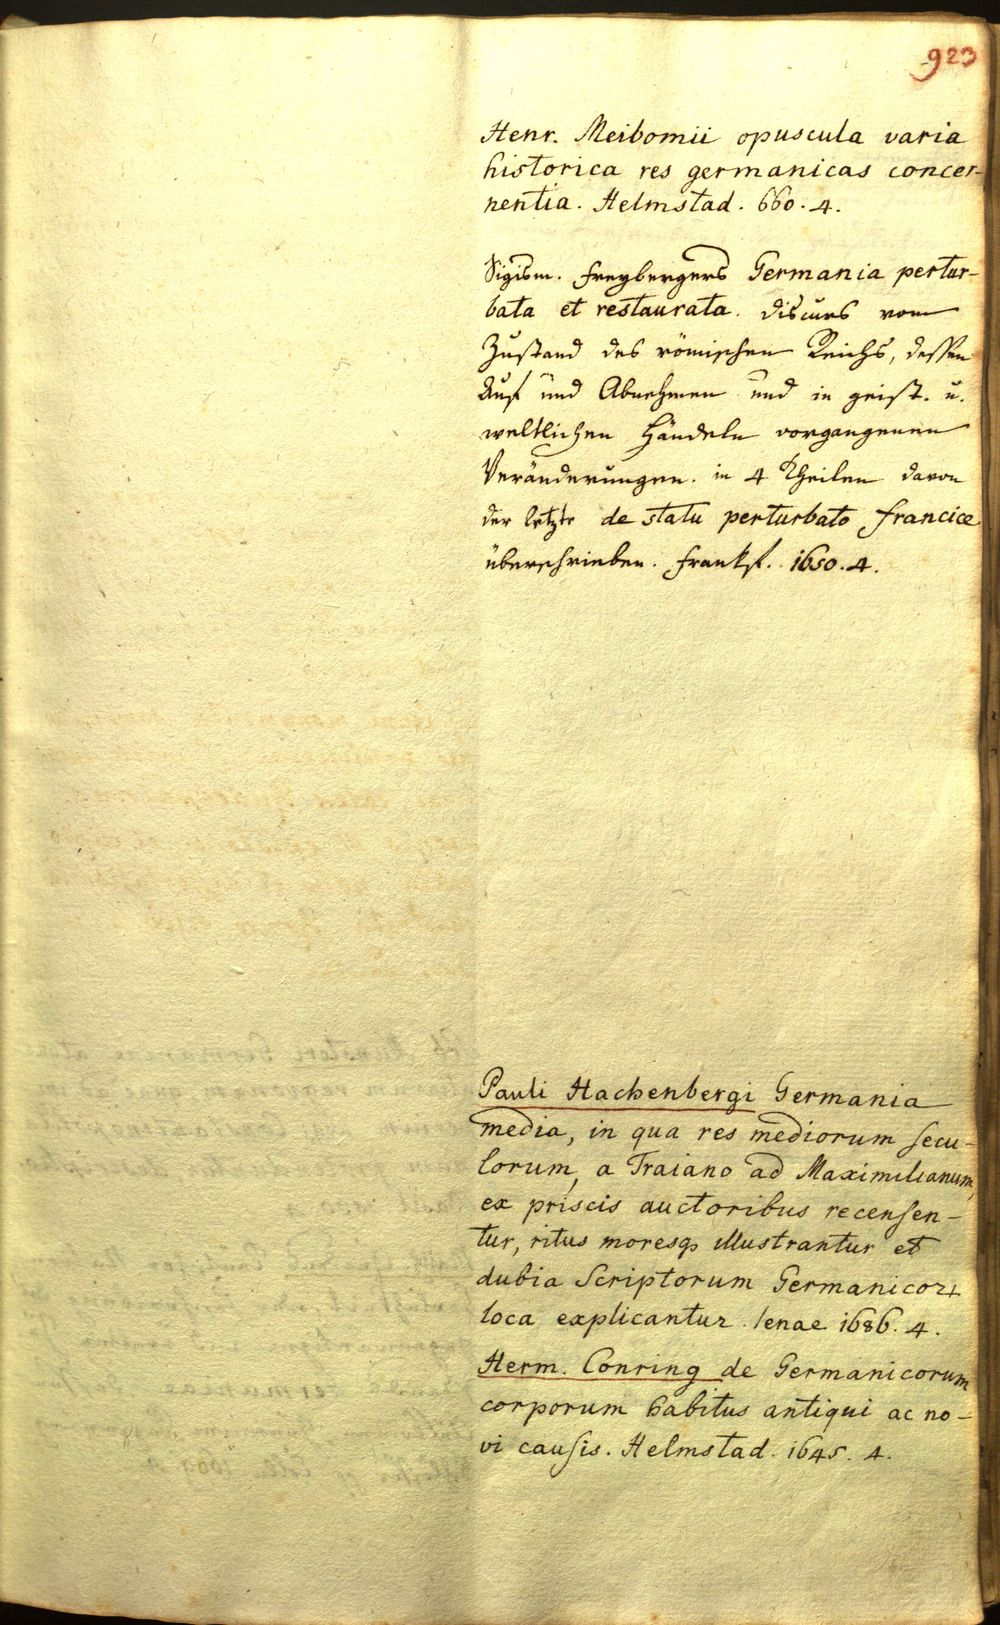 923
Henr. Meibomii opuscula varia
historica res germanicas concer-
nentia. Helmstad. 660. 4.
Sigism. Freybergers Germania pertur-
bata et restaurata. Discurs vom
Zustand des römischen Reichs, dessen
Auf und Abnehmen und in geist. u.
weltlichen Händeln vorgangenen
Veränderungen. in 4 Theilen davon
der letzte de statu perturbato Franciæ
überschrieben. Frankf. 1650. 4.
Pauli Hachenbergi Germania
media, in qua res mediorum secu-
lorum, a Traiano ad Maximilianum,
ex priscis auctoribus recensen-
tur, ritus moresq illustrantur et
dubia Scriptorum Germanicor
loca explicantur. Ienae 1686. 4.
Herm. Conring de Germanicorum
corporum habitus antiqui ac no-
vi causis. Helmstad. 1645. 4.